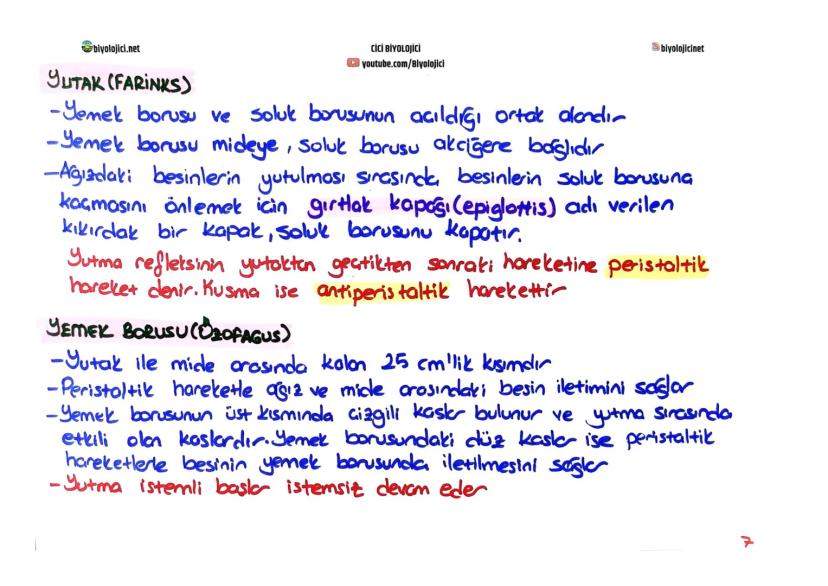 biyolojici.net
CİCİ BİYOLOJİCİ
youtube.com/Biyolojici
biyolojicinet
YUTAK (FARİNKS)
-Yemek borusu ve soluk borusunun açıldığı ortak alandır
-Yemek borusu mideye, soluk borusu akciğere bağlıdır
-Ağızdaki besinlerin yutulması sırasında besinlerin soluk borusuna
kaçmasını önlemek için gırtlak kapağı(epiglottis) adı verilen
kıkırdak bir kapak, soluk borusunu kapatır.
Yutma refleksinin yutaktan geçtikten sonraki hareketine peristaltik
hareket denir. Kusma ise antiperistaltik harekettir
YEMEK BORUSU(ÖZOFAGUS)
-Yutak ile mide arasında kalan 25 cm'lik kısımdır
-Peristaltik hareketle ağız ve mide arasındaki besin iletimini sağlar
-Yemek borusunun üst kısmında çizgili kaslar bulunur ve yutma sırasında
etkili olan kaslardır. Yemek borusundaki düz kaslar ise peristaltik
hareketlerle besinin yemek borusunda iletilmesini sağlar
-Yutma istemli başlar istemsiz devam eder
7